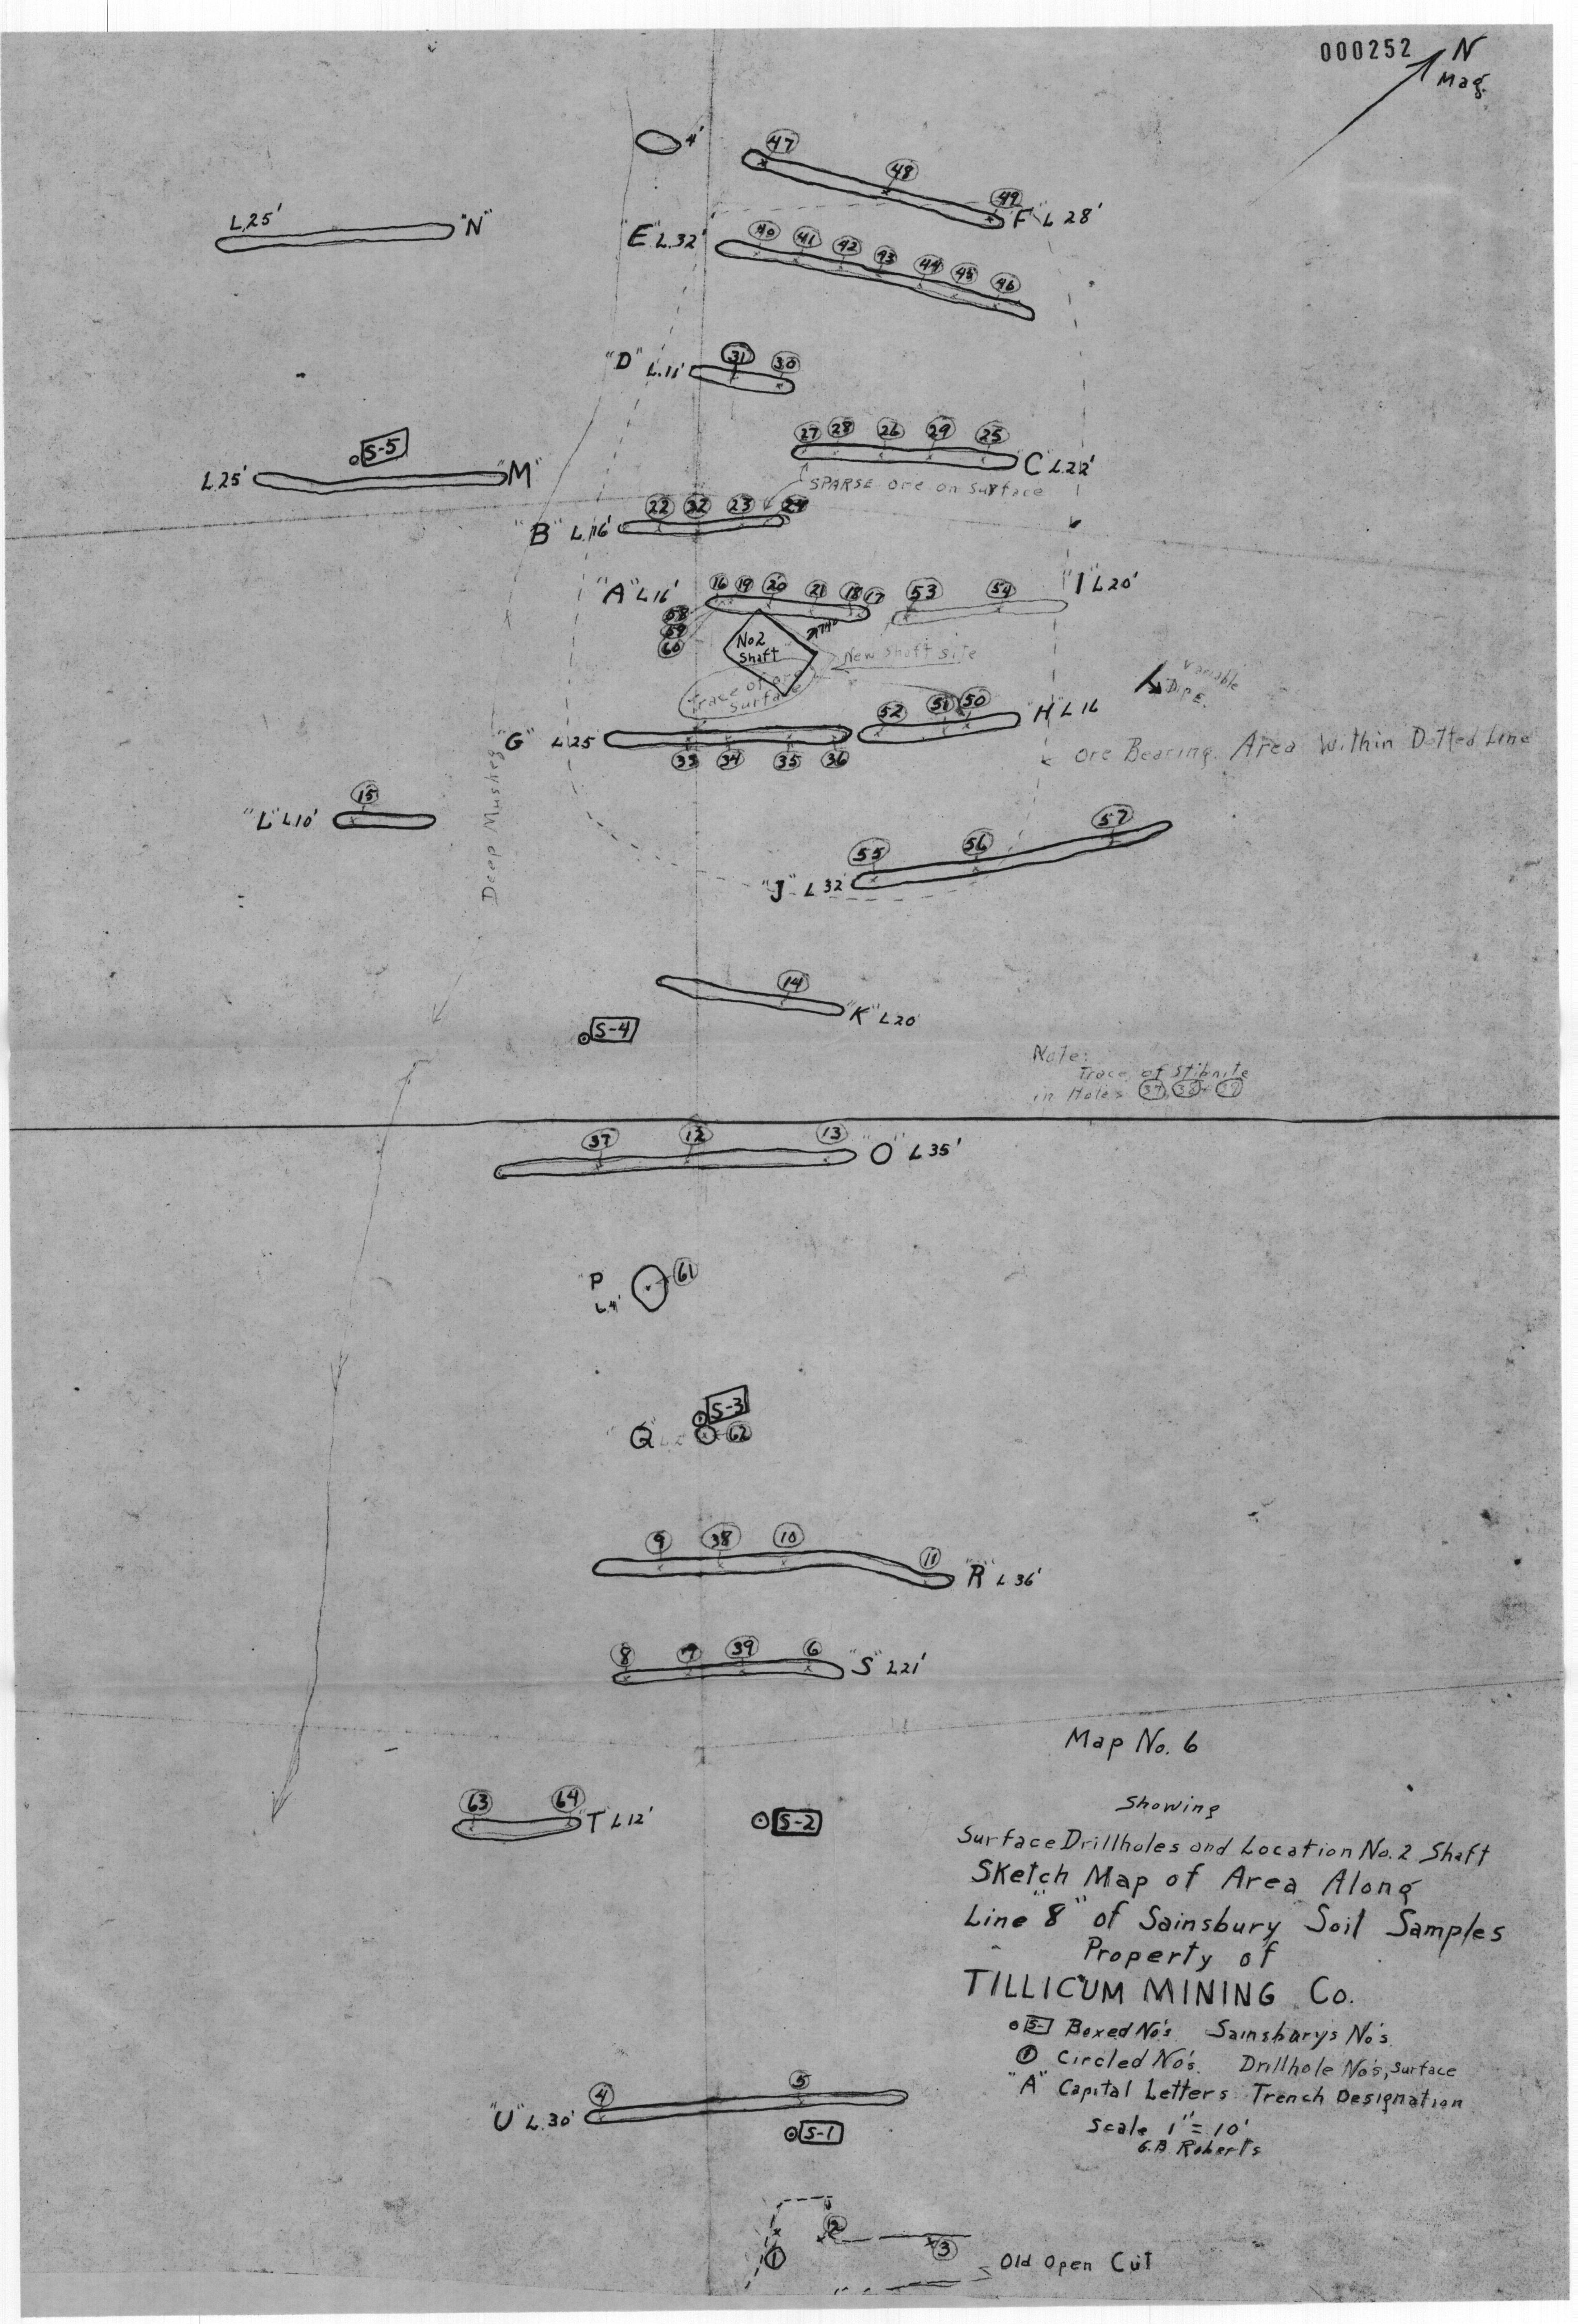 000252
N
Mag.
4'
47
48
49
"F" L 28'
L.25' "N"
"E" L.32'
40 41 42 43 44 45 46
"D" L.11'
31 30
S-5
L.25' "M"
27 28 26 29 25
"C" L.22'
SPARSE ore on Surface
"B" L.16'
22 32 23 24
"A" L.16'
16 19 20 21 18 17
53 54
"I" L20'
58
59
60
No2
Shaft
New Shaft Site
Trace of ore
Surface
Variable
Dips.
"G" L.25
52 51 50
"H" L 16
33 34 35 36
Ore Bearing Area Within Dotted Line
Deep Muskeg
15
"L" L.10'
55 56 57
"J" L 32'
14
"K" L20'
S-4
Note:
Trace of Stibnite
in Holes 37, 38, 39
37 12 13
"O" L 35'
"P"
L.4'
61
S-3
"Q"
62
9 38 10 11
"R" L 36'
8 7 39 6
"S" L21'
Map No. 6
63 64
"T" L12'
S-2
Showing
Surface Drillholes and Location No. 2 Shaft
Sketch Map of Area Along
Line "8" of Sainsbury Soil Samples
Property of
TILLICUM MINING Co.
S- Boxed No's Sainsburys No's.
1 Circled No's. Drillhole No's, Surface
"A" Capital Letters Trench Designation
Scale 1" = 10'
G.B. Roberts
4 5
"U" L.30'
S-1
1
2
3
Old Open Cut